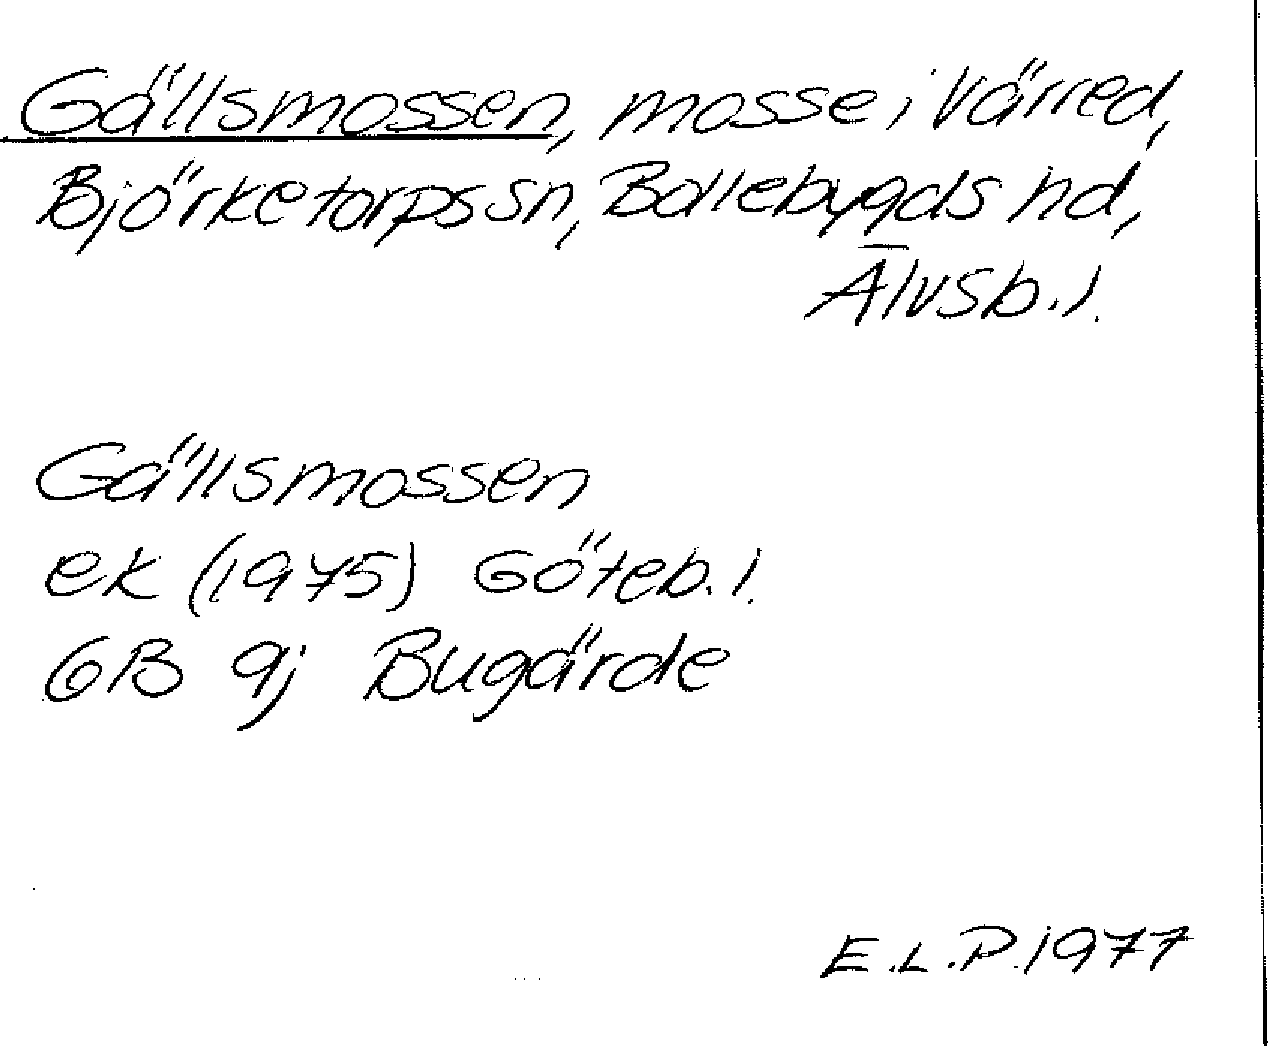 Gällsmossen, mosse i Värred,
Björketorps sn, Bollebygds hd,
Älvsb. l.
Gällsmossen
ek (1975) Göteb. l.
6B 9j Bugärde
E.L.P. 1977